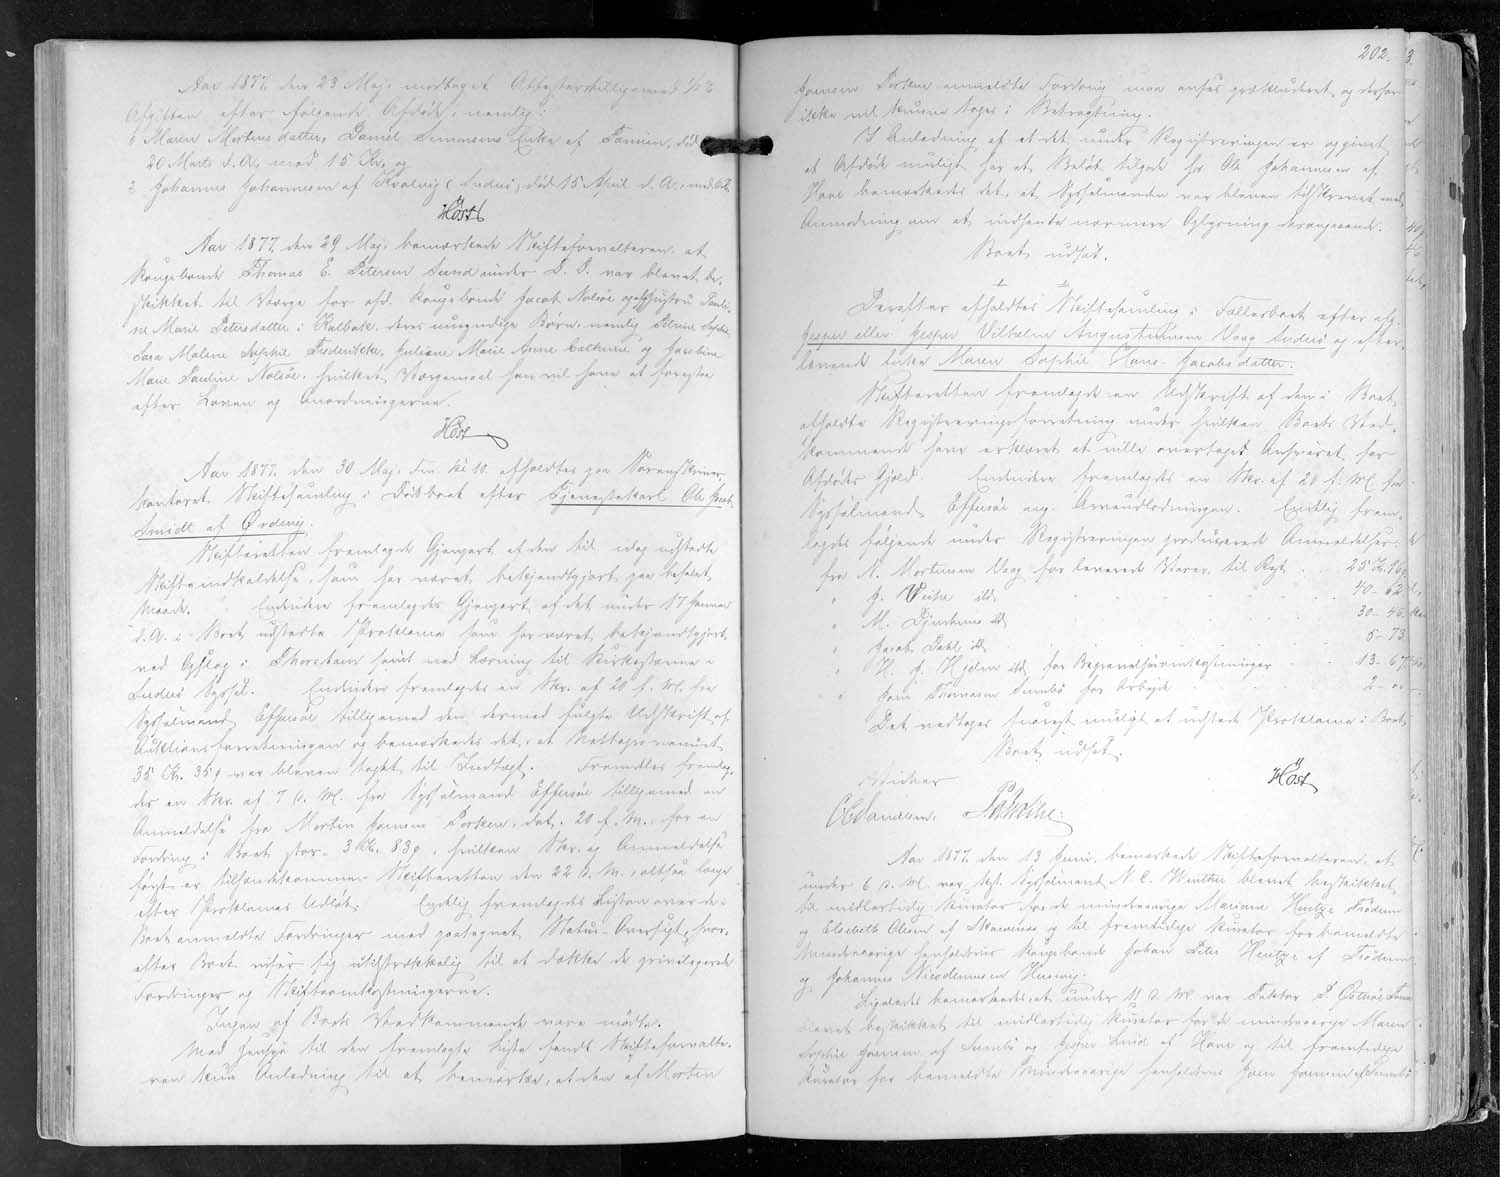 Aar 1877. den 23 Maj. modtaget Attester tilligemed ½ %
Afgiften efter følgende Afdøde, nemlig:
1 Maren Mortensdatter, Daniel Simonsens Enke af Famien, død
20 Marts d. A. med 15 Kr. og
2 Johannes Johannesen af Kvalvig (Suderø) død 15 April d. A., med
Høst
Aar 1877. den 29 Maj. bemærkede Skifteforvalteren, at
Kongsbonde Thomas E. Petersen Sund under D. D. var blevet be-
skikket til Værge for afd. Kongsbonde Jacob Nolsøe og Hustru Pauli-
ne Marie Petersdatter i Kalbak, deres umyndige Børn, nemlig Petrine Sophie
Sara Malene Sophie Frederikke, Juliane Marie Anne Cathrine og Jacobine
Marie Pauline Nolsøe, hvilket Værgemaal han vil have at forestaa
efter Loven og Anordningerne.
Høst
Aar 1877. den 30 Maj. Fm. Kl. 10. afholdtes paa Sorenskriver-
kontoret Skiftesamling i Dødsboet efter Tjenestekarl Ole Jacob
Smidt af Ørdevig.
Skifteretten fremlagde Gjenpart at den til idag udstedte
Skifteindkaldelse, som har været bekjendtgjort paa befalet
Maade. Endvidere fremlagdes Gjenpart af det under 17 Januar
d. A. i Boet udstedte Proklama som har været bekjendtgjort
ved Opslag i Thorshavn samt ved Læsning til Kirkestævne i
Suderø Syssel. Endvidere fremlagdes en Skr. af 20 f. M. fra
Sysselmand Effersøe tilligemed den dermed fulgte Udskrift af
Auktionsforretningen og bemærkedes det, at Nettoprovenuet
35 Kr. 35 ø var bleven tagt til Indtægt. Fremdeles fremlag-
des en Skr. af 7 d. M. fra Sysselmand Effersøe tilligemed en
Anmeldelse fra Morten Joensen Porkere, dat. 20 f. M., for en
Fordring i Boet stor 3 Kr. 83 ø, hvilken Skr. og Anmeldelse
først er tilhændekommen Skifteretten den 22 d. M., altsaa længe
efter Proklamas Udløb. Endlig fremlagdes Listen over de i
Boet anmeldte Fordringer med paategnet Status-Oversigt, hvor-
efter Boet viser sig utilstrækkelig til at dække de privilegerede
Fordringer og Skifteomkostningerne.
Ingen af Boets Vedkommende vare mødte.
Med Hensyn til den fremlagte Liste fandt Skifteforvalte-
ren kun Anledning til at bemærke, at den af Morten
202.
Joensen Porkere anmeldte Fordring maa anses prækluderet og derfor
ikke vil kunne tages i Betragtning.
I Anledning af at det under Registreringen er opgivet
at Afdøde muligt har et Beløb tilgode hos Ole Johannesen af
Hove bemærkedes det, at Sysselmanden var bleven tilskrevet med
Anmodning om at indhente nærmere Oplysning desangaaende.
Boet udsat.
Derefter afholdtes Skiftesamling i Fællesboet efter afd.
Jesper eller Jesper Vilhelm Augustinussen Vaag Suderø og efter-
levende Enke Maren Sophie Hans-Jacobsdatter.
Skifteretten fremlagde en Udskrift af den i Boet
afholdte Registreringsforretning under hvilken Boets Ved-
kommende have erklæret at ville overtaget Ansvaret for
Afdødes Gjæld. Endvidere fremlagdes en Skr. af 20 f. M. fra
Sysselmand Effersøe ang. Arveudlodningen. Endlig frem-
lagdes følgende under Registreringen producerede Anmeldelser:
fra N. Mortensen Vaag for leverede Varer til Rest 25 Kr. 96 ø
" J. Weihe ild 40 - 62
" M. Djurhuus ild 30 - 45
" Jacob Dahl ild 5 - 73
" H. J. Hjelm ild for Begravelsesomkostninger 13 - 67
" Joen Thomasen Sumbø for Arbejde 2 - " -
Det vedtoges snarest muligt at udstede Proklama i Boet
Boet udsat.
Høst
Vidner
Aar 1877. den 13 Juni, bemærkede Skifteforvalteren, at
under 6 d. M. var kst. Sysselmand N. C. Winther blevet beskikket
til midlertidig Kurator for de mindreaarige Mariane Hentze
og Elsebeth Olsen af Skaapnæs og til fremtidige Kurator for bemeldte
Mindreaarige henholdsvis Kongsbonde Johan Peter Hentze af
og Johannes Nicodemussen Husevig.
Ligeledes bemærkedes, at under 11 d. M. var Faktor P. Østrøe
blevet beskikket til midlertidig Kurator for de mindreaarige Maren
Sophie Joensen af Sumbø og Jesper Smid af Hove og til fremtidige
Kurator for bemeldte Mindreaarige henholdsvis Joen Joensen af Sumbø